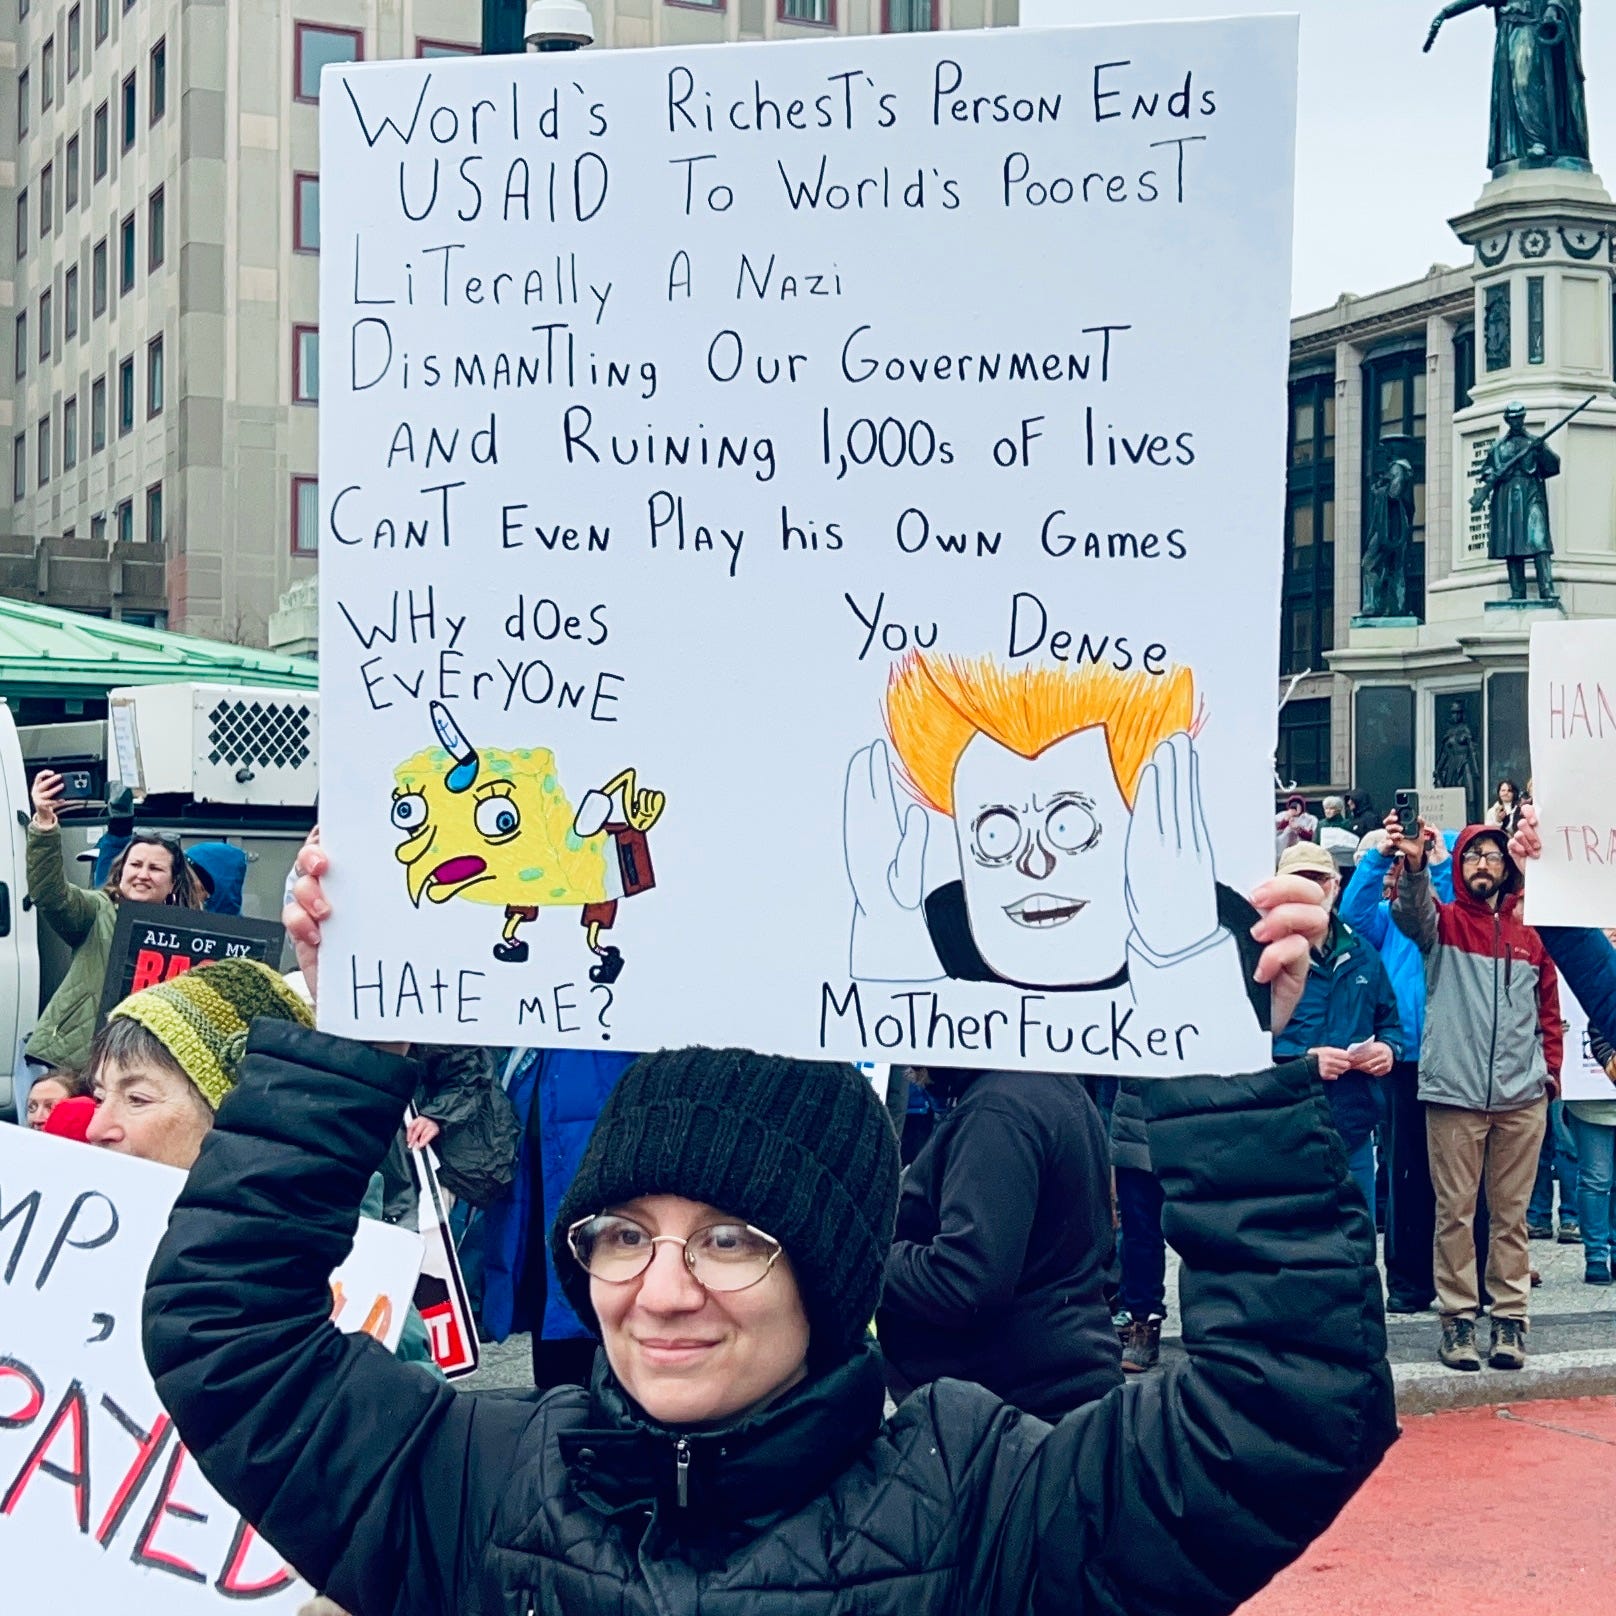 World's Richest's Person Ends
USAID To World's Poorest
Literally A Nazi
Dismantling Our Government
And Ruining 1,000s of lives
Cant Even Play his Own Games
WHy dOes
EvErYONE
HAtE mE?
You Dense
MotherFucker
ALL OF MY
MP,
PAYED
HAN
TRA